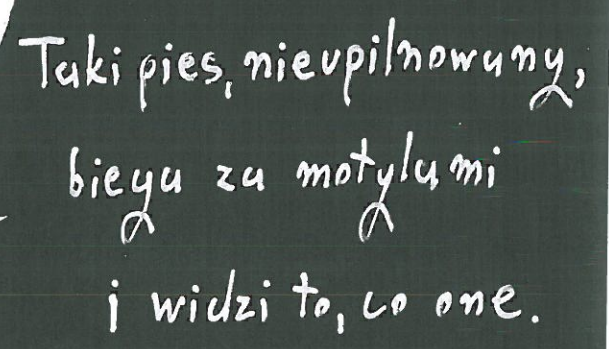 Taki pies, nieupilnowany,
biega za motylami
i widzi to, co one.